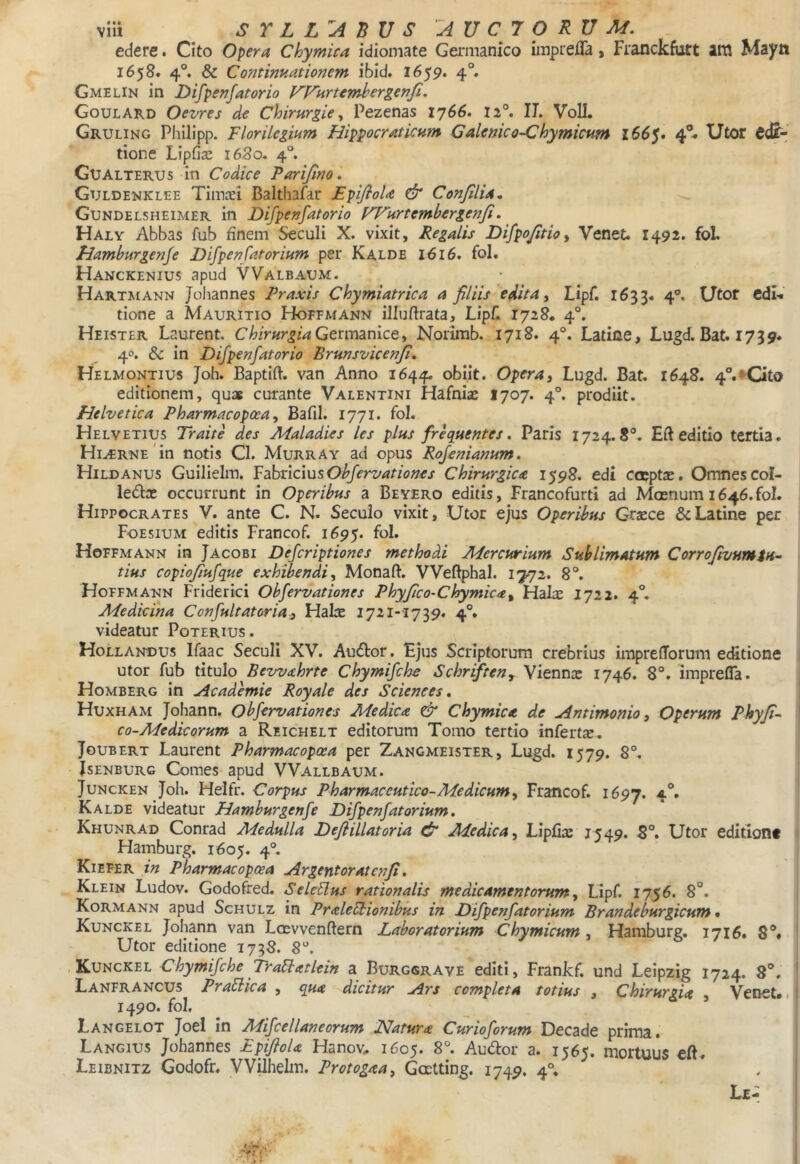 viii SYLLABUS AUCTORUM.
edere. Cito Opera Chymica idiomate Germanico impreſſa, Franckfurt am Mayn
1658. 4°. & Continuationem ibid. 1659. 4°.
GMELIN in Diſpenſatorio VVurtembergenſi.
GOULARD Oevres de Chirurgie, Pezenas 1766. 12°. II. Voll.
GRULING Philipp. Florilegium Hippocraticum Galenico-Chymicum 1665. 4°. Utor edi-
tione Lipſiæ 1680. 4°.
GUALTERUS in Codice Pariſino.
GULDENKLEE Timæi Balthaſar Epiſtolæ & Conſilia.
GUNDELSHEIMER in Diſpenſatorio VVurtembergenſi.
HALY Abbas ſub finem Seculi X. vixit, Regalis Diſpoſitio, Venet. 1492. fol.
Hamburgenſe Diſpenſatorium per KALDE 1616. fol.
HANCKENIUS apud VVALBAUM.
HARTMANN Johannes Praxis Chymiatrica a filiis edita, Lipſ. 1633. 4°. Utor edi-
tione a MAURITIO HOFFMANN illuſtrata, Lipſ. 1728. 4°.
HEISTER Laurent. Chirurgia Germanice, Norimb. 1718. 4°. Latine, Lugd. Bat. 1739.
4°. & in Diſpenſatorio Brunsvicenſi.
HELMONTIUS Joh. Baptiſt. van Anno 1644. obiit. Opera, Lugd. Bat. 1648. 4°. Cito
editionem, quæ curante VALENTINI Hafniæ 1707. 4°. prodiit.
Helvetica Pharmacopœa, Baſil. 1771. fol.
HELVETIUS Traité des Maladies les plus frèquentes. Paris 1724. 8°. Eſt editio tertia.
HIÆRNE in notis Cl. MURRAY ad opus Roſenianum.
HILDANUS Guilielm. Fabricius Obſervationes Chirurgicæ 1598. edi cœptæ. Omnes col-
lectæ occurrunt in Operibus a BEYERO editis, Francofurti ad Mœnum 1646. fol.
HIPPOCRATES V. ante C. N. Seculo vixit, Utor ejus Operibus Græce & Latine per
FOESIUM editis Francof. 1695. fol.
HOFFMANN in JACOBI Deſcriptiones methodi Mercurium Sublimatum Corroſivum tu-
tius copioſiuſque exhibendi, Monaſt. VVeſtphal. 1772. 8°.
HOFFMANN Friderici Obſervationes Phyſico-Chymicæ, Halæ 1722. 4°.
Medicina Conſultatoria, Halæ 1721-1739. 4°.
videatur POTERIUS.
HOLLANDUS Iſaac Seculi XV. Auctor. Ejus Scriptorum crebrius impreſſorum editione
utor ſub titulo Bevvæhrte Chymiſche Schriften, Viennæ 1746. 8°. impreſſa.
HOMBERG in Academie Royale des Sciences.
HUXHAM Johann. Obſervationes Medicæ & Chymicæ de Antimonio, Operum Phyſi-
co-Medicorum a REICHELT editorum Tomo tertio inſertæ.
JOUBERT Laurent Pharmacopœa per ZANGMEISTER, Lugd. 1579. 8°.
ISENBURG Comes apud VVALLBAUM.
JUNCKEN Joh. Helfr. Corpus Pharmaceutico-Medicum, Francof. 1697. 4°.
KALDE videatur Hamburgenſe Diſpenſatorium.
KHUNRAD Conrad Medulla Deſtillatoria & Medica, Lipſiæ 1549. 8°. Utor editione
Hamburg. 1605. 4°.
KIEFER in Pharmacopœa Argentoratenſi.
KLEIN Ludov. Godofred. Selectus rationalis medicamentorum, Lipſ. 1756. 8°.
KORMANN apud SCHULZ in Prælectionibus in Diſpenſatorium Brandeburgicum.
KUNCKEL Johann van Lœvvenſtern Laboratorium Chymicum, Hamburg. 1716. 8°.
Utor editione 1738. 8°.
KUNCKEL Chymiſche Tractætlein a BURGGRAVE editi, Frankf. und Leipzig 1724. 8°.
LANFRANCUS Practica, quæ dicitur Ars completa totius, Chirurgiæ, Venet.
1490. fol.
LANGELOT Joel in Miſcellaneorum Naturæ Curioſorum Decade prima.
LANGIUS Johannes Epiſtolæ Hanov. 1605. 8°. Auctor a. 1565. mortuus eſt.
LEIBNITZ Godofr. VVilhelm. Protogæa, Gœtting. 1749. 4°.
LE-